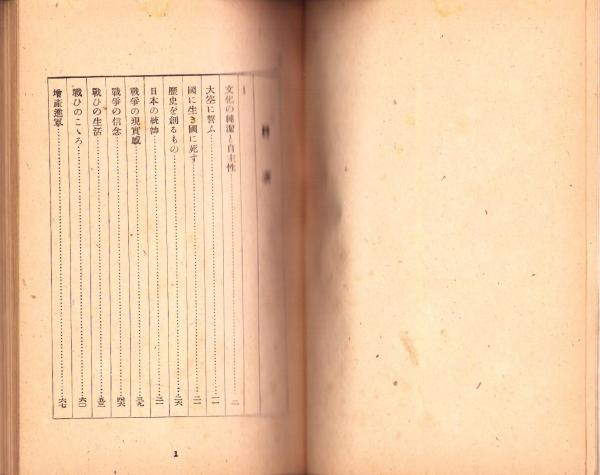 I
文化の純潔と自主性……二
大空に誓ふ……一一
國に生き國に死す……二一
歷史を創るもの……二六
日本の統帥……三一
戰爭の現實感……三九
戰爭の信念……四六
戰ひの生活……五三
戰ひのこゝろ……六〇
增產進軍……六七
1